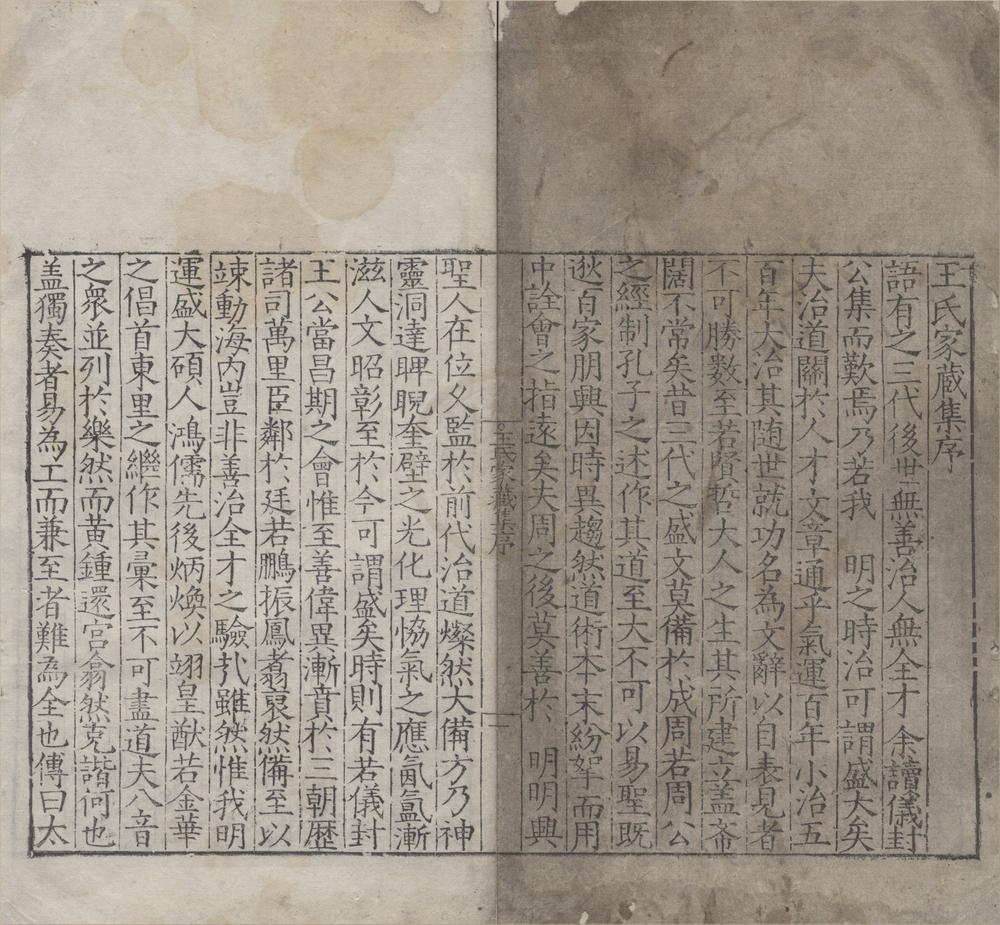 王氏家藏集序
語有之三代後世無善治人無全才余讀儀封
公集而歎焉乃若我　明之時治可謂盛矣
夫治道關於人才文章通乎氣運百年小治五
百年大治其随世就功名為文辭以自表見者
不可勝數至若賢哲大人之生其所建立盖㪯
闊不常矣昔三代之盛文莫備於成周若周公
之經制孔子之述作其道至大不可以易聖既
逖百家朋興因時異趨然道術本末紛挐而用
中詮會之指遠矣夫周之後莫善於　明明興
王氏家藏集序
一
聖人在位夊監於前代治道燦然大備方乃神
靈洞達睥睨奎壁之光化理恊氣之應氤氳漸
滋人文昭彰至於今可謂盛矣時則有若儀封
王公當昌期之會惟至善偉異漸賁於三朝歷
諸司萬里臣鄰於廷若鵬振鳳翥裒然備至以
竦動海内豈非善治全才之驗㢤雖然惟我明
運盛大碩人鴻儒先後炳煥以翊皇猷若金華
之倡首東里之繼作其彙至不可盡道夫八音
之衆並列於樂然而黃鍾還宮翕然克諧何也
盖獨奏者易為工而兼至者難為全也傳曰太